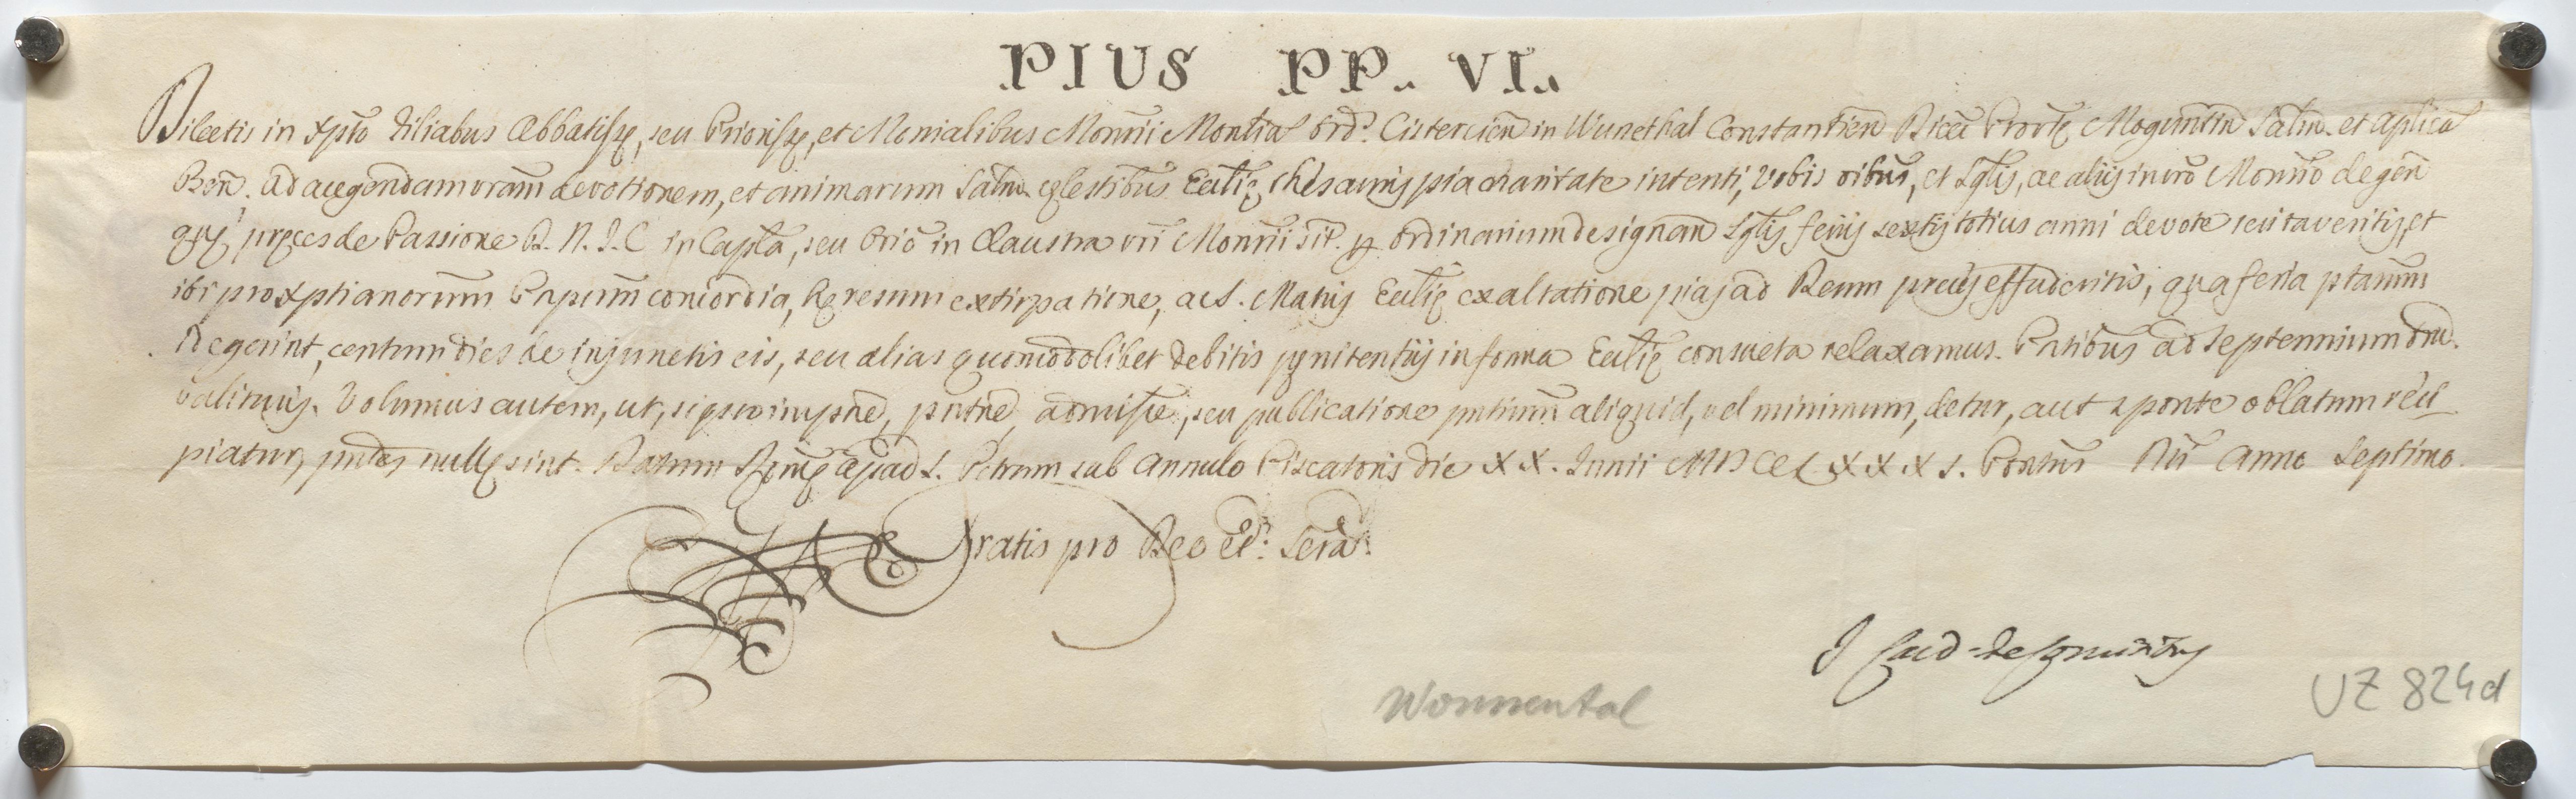 PIUS PP. VI.
Dilectis in Xpto Filiabus Abbatissę, seu Priorissę, et Monialibus Monrii Monlia Ord.s Cistercien in Wunethal Constantien Diœc Provę Moguntin Salm. et Aplica
Ben. Ad augendam vram devotionem, et animarum salm cęlestibus Ecclię thesauris pia charitate intenti, Vobis oibus, et sglis, ac aliis in vro Monrio degen
qui preces de Passione D. N. J. C in Capla, seu Orio in Claustra vri Monrii sit. p Ordinarium designan sglis feriis sextis totius anni devote recitaveritis, et
ibi pro Xptianorum Prpum concordia, hęresum extirpatione, ac S. Matris Ecclię exaltatione pias ad Deum preces effuderitis, qua feria ptarum
id egerint, centum dies de injunctis eis, seu alias quomodolibet debitis pęnitentiis in forma Ecclię consueta relaxamus. Pntibus ad Septennium tm.
valituris. Volumus autem, ut, si pro impne, pntne admissie, seu publicatione pntium aliquid, vel minimum, detur, aut sponte oblatum reci
piatur, pntes nullę sint. Datum Romę apud S. Petrum sub Annulo Piscatoris die XX. Junii MDCCLXXXI. Pontus Nri Anno Septimo.
Gratis pro Deo et Scra
I Card. de Comitibus
Wonnental
UZ 824d